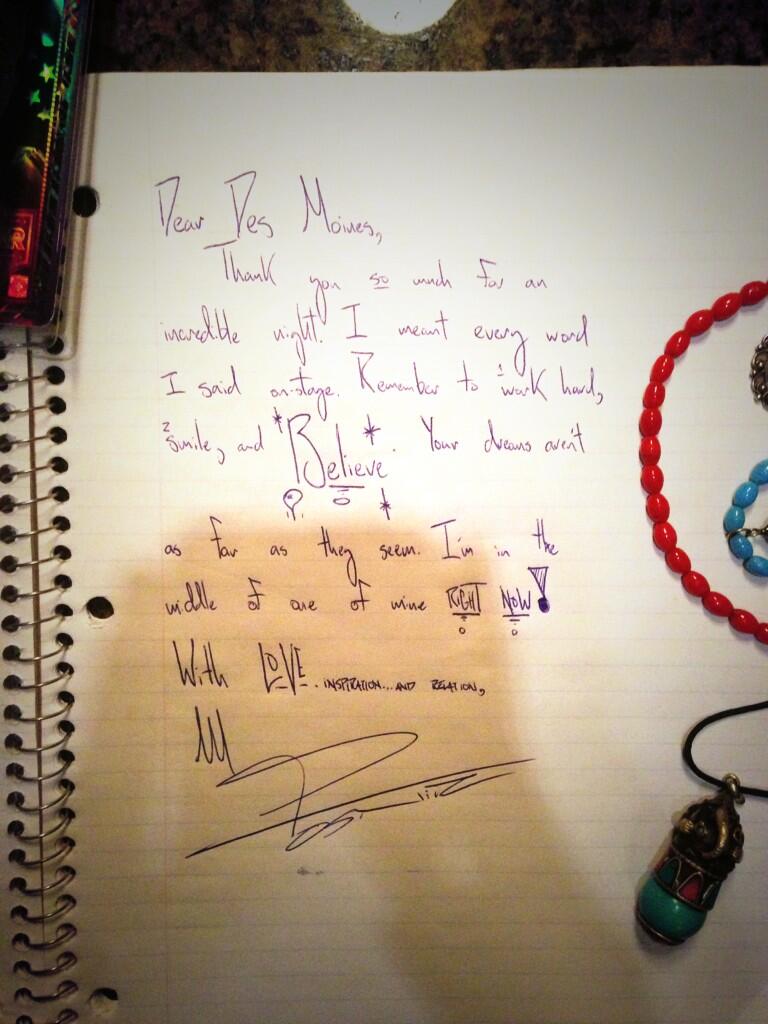 Dear Des Moines,
Thank you so much for an
incredible night. I meant every word
I said on-stage. Remember to 1 work hard,
2 smile, and *Believe*. Your dreams aren't
as far as they seem. I'm in the
middle of one of mine RIGHT NOW!
With LOVE. INSPIRATION... AND RELATION,